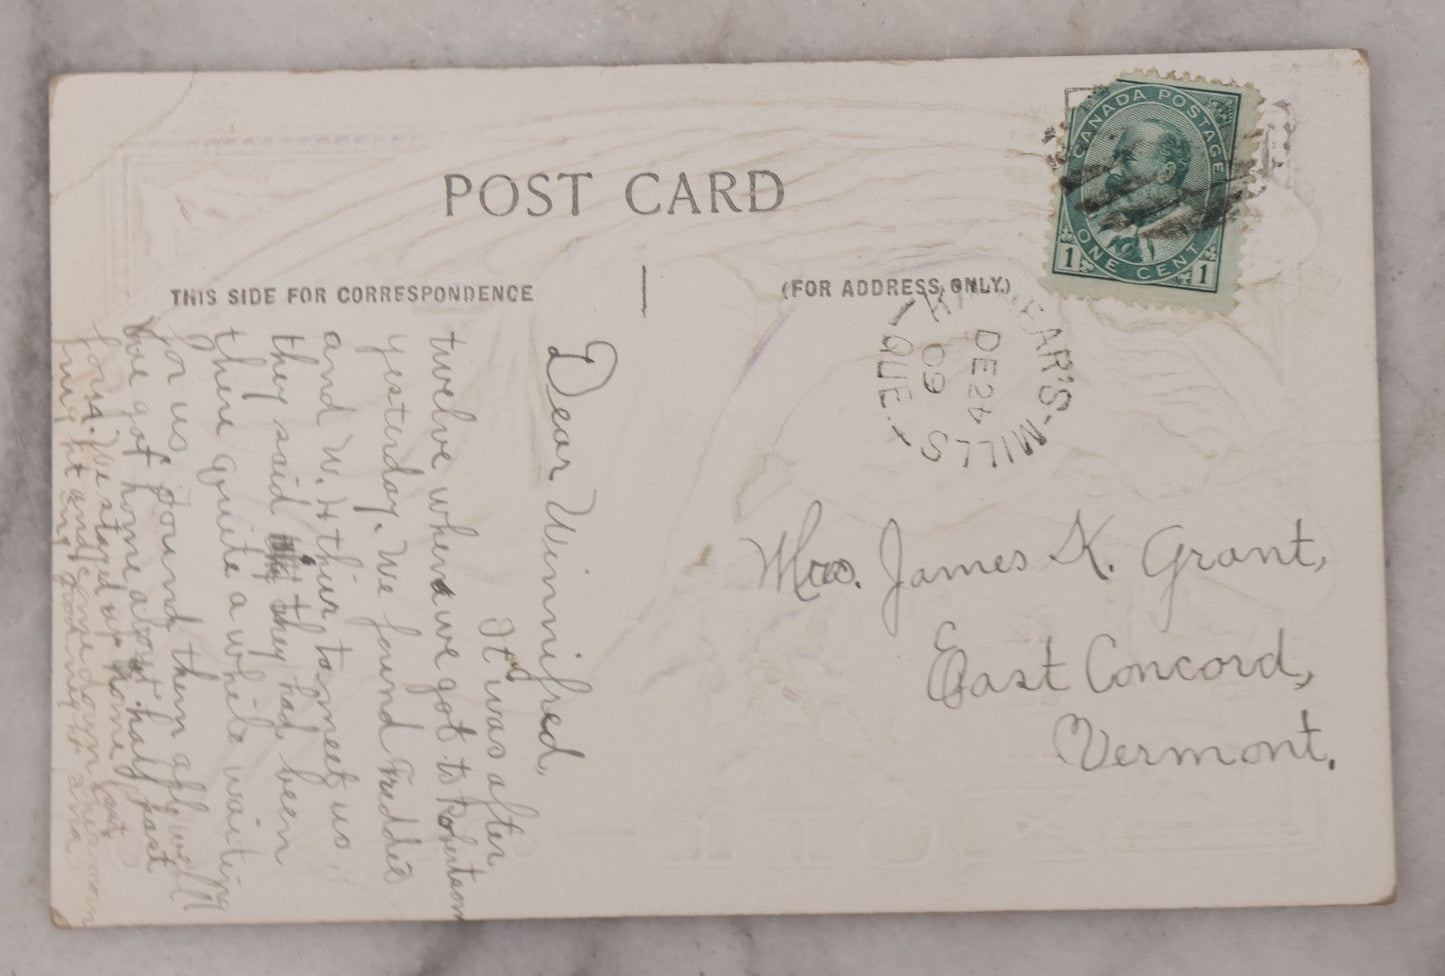 POST CARD
THIS SIDE FOR CORRESPONDENCE
(FOR ADDRESS ONLY.)
CANADA POSTAGE
ONE CENT
1 1
KINNEAR'S-MILLS
DE 24
09
QUE.
Mrs. James K. Grant,
East Concord,
Vermont.
Dear Winnifred,
It was after
twelve when we got to Robertson
yesterday. We found Freddie
and W. H their to meet us
they said they had been
there quite a while waiting
for us found them all well
We got home about half past
four. We stayed up home last
night and came down this morn
ing good night